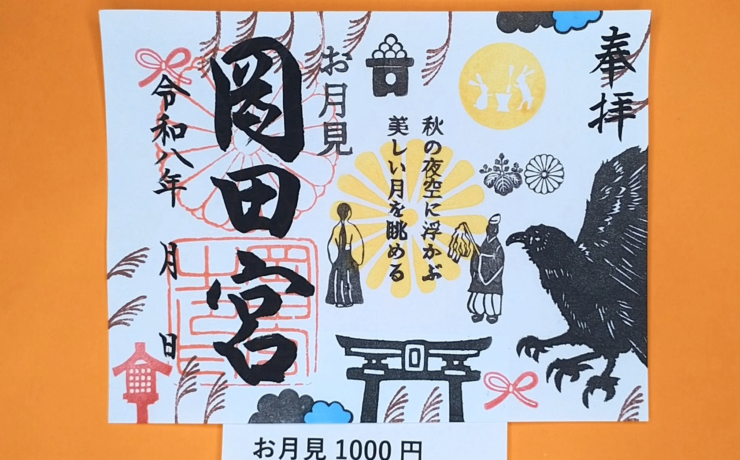 奉拝
秋の夜空に浮かぶ
美しい月を眺める
お月見
岡田宮
令和八年 月 日
お月見 1000 円